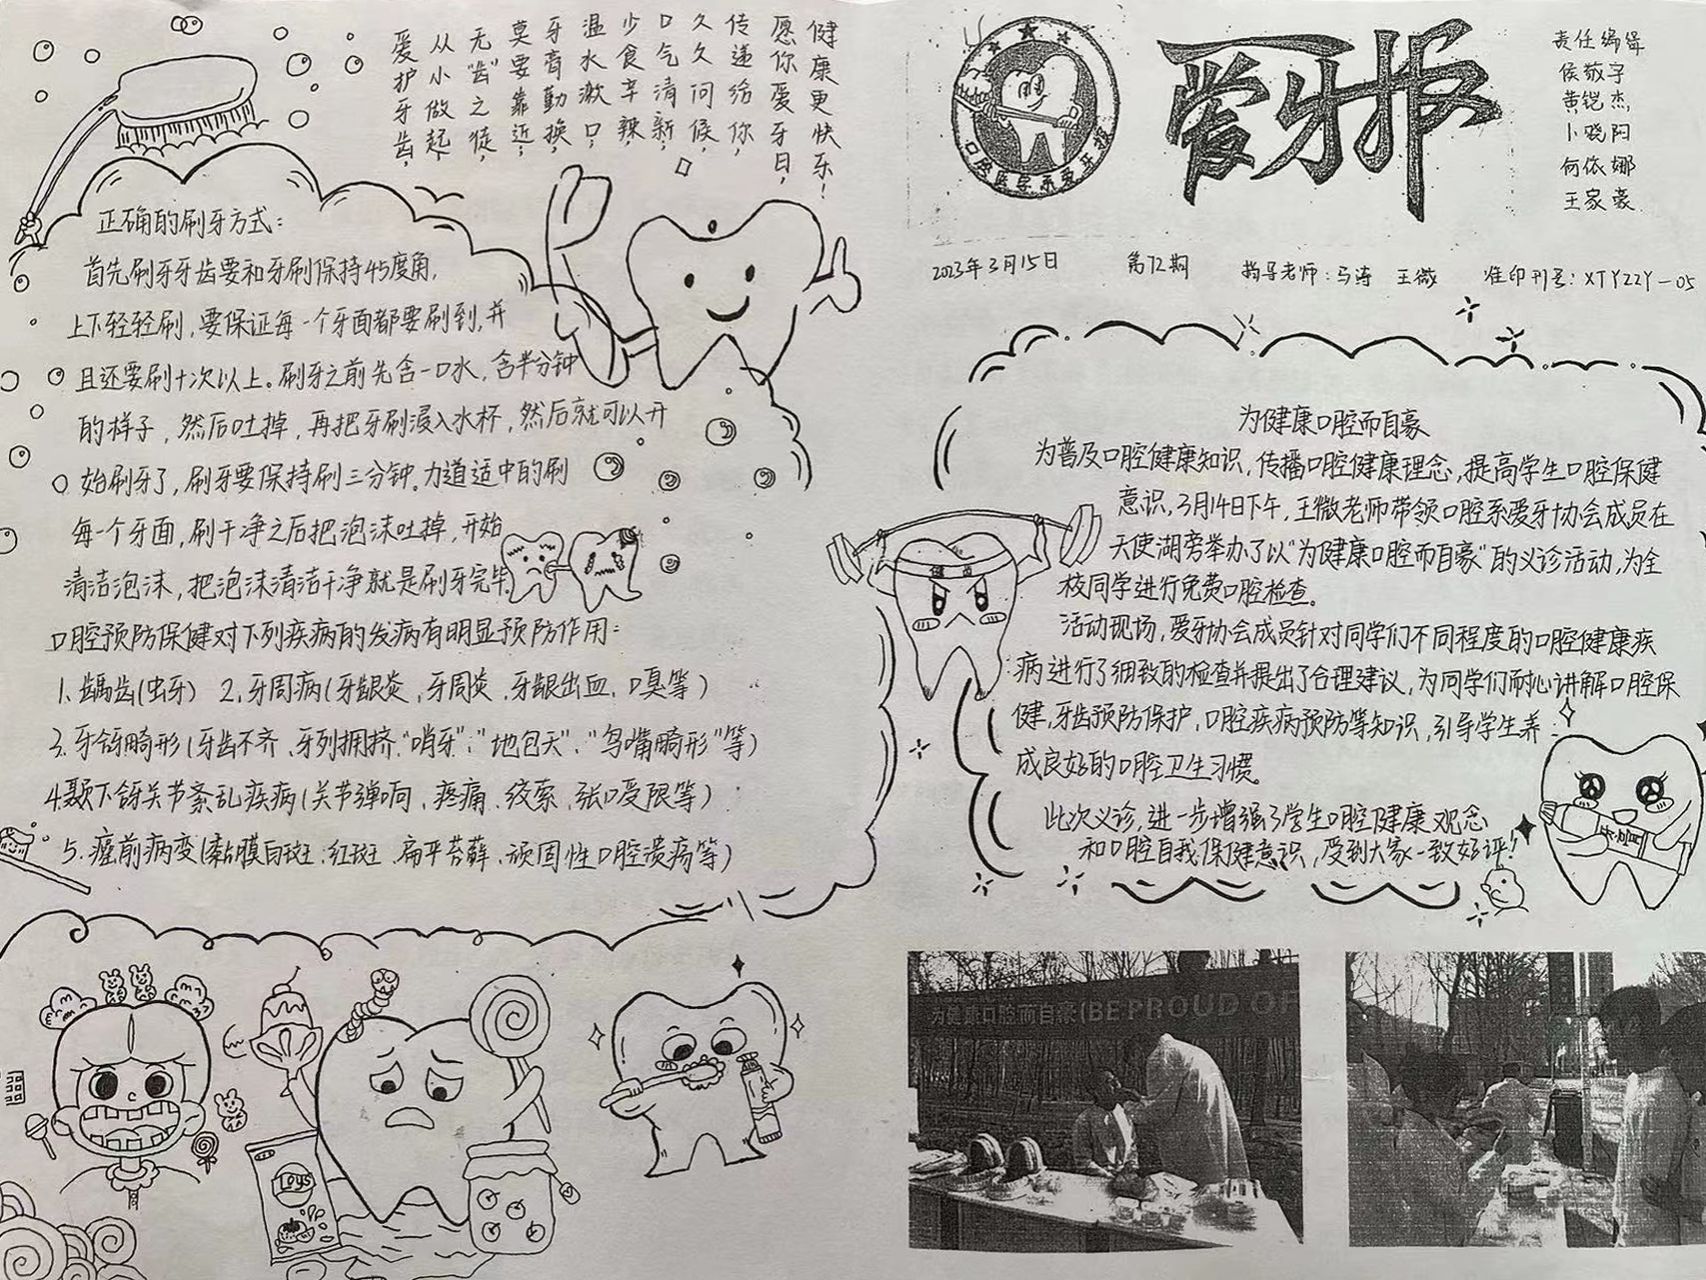 爱牙报
口腔医学系爱牙报
责任编辑
侯敬宇
黄铠杰
卜晓阳
何依娜
王家豪
2023年3月15日 第72期 指导老师:马涛 王微 准印刊号:XTYZZY-05
健康更快乐!
愿你爱牙日,
传递给你,
久久问候,
口气清新,
少食辛辣,
温水漱口,
牙膏勤换,
莫要靠近,
无“齿”之徒,
从小做起,
爱护牙齿,
正确的刷牙方式:
首先刷牙牙齿要和牙刷保持45度角,
上下轻轻刷,要保证每一个牙面都要刷到,并
且还要刷十次以上。刷牙之前先含一口水,含半分钟
的样子,然后吐掉,再把牙刷浸入水杯,然后就可以开
始刷牙了,刷牙要保持刷三分钟。力道适中的刷
每一个牙面,刷干净之后把泡沫吐掉,开始
清洁泡沫,把泡沫清洁干净就是刷牙完毕。
口腔预防保健对下列疾病的发病有明显预防作用:
1、龋齿(虫牙) 2、牙周病(牙龈炎、牙周炎、牙龈出血、口臭等)
3、牙颌畸形(牙齿不齐、牙列拥挤、“哨牙”、“地包天”、“鸟嘴畸形”等)
4、颞下颌关节紊乱疾病(关节弹响、疼痛、绞索、张口受限等)
5、癌前病变(黏膜白斑、红斑、扁平苔藓、顽固性口腔溃疡等)
为健康口腔而自豪
为普及口腔健康知识,传播口腔健康理念,提高学生口腔保健
意识,3月14日下午,王微老师带领口腔系爱牙协会成员在
天使湖旁举办了以“为健康口腔而自豪”的义诊活动,为全
校同学进行免费口腔检查。
活动现场,爱牙协会成员针对同学们不同程度的口腔健康疾
病进行了细致的检查并提出了合理建议,为同学们耐心讲解口腔保
健,牙齿预防保护,口腔疾病预防等知识,引导学生养
成良好的口腔卫生习惯。
此次义诊,进一步增强了学生口腔健康观念
和口腔自我保健意识,受到大家一致好评!
健齿
牙膏
Lays
为健康口腔而自豪(BE PROUD OF